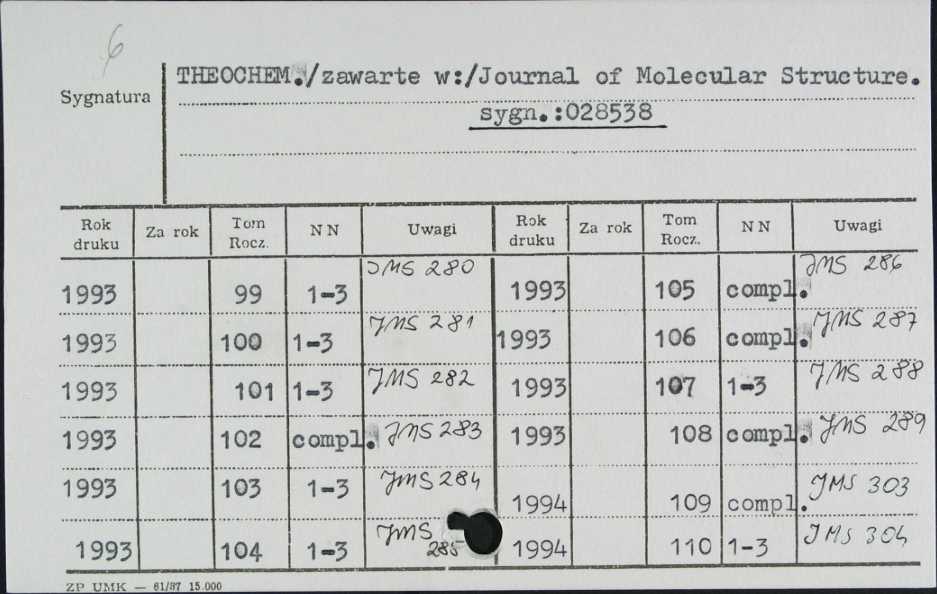 6
THEOCHEM./zawarte w:/Journal of Molecular Structure.
Sygnatura
sygn.:028538
Rok druku Za rok Tom Rocz. NN Uwagi Rok druku Za rok Tom Rocz. NN Uwagi
1993 99 1-3 JMS 280 1993 105 compl. JMS 286
1993 100 1-3 JMS 281 1993 106 compl. JMS 287
1993 101 1-3 JMS 282 1993 107 1-3 JMS 288
1993 102 compl. JMS 283 1993 108 compl. JMS 289
1993 103 1-3 JMS 284 1994 109 compl. JMS 303
1993 104 1-3 JMS 285 1994 110 1-3 JMS 304
ZP UMK — 61/87 15.000